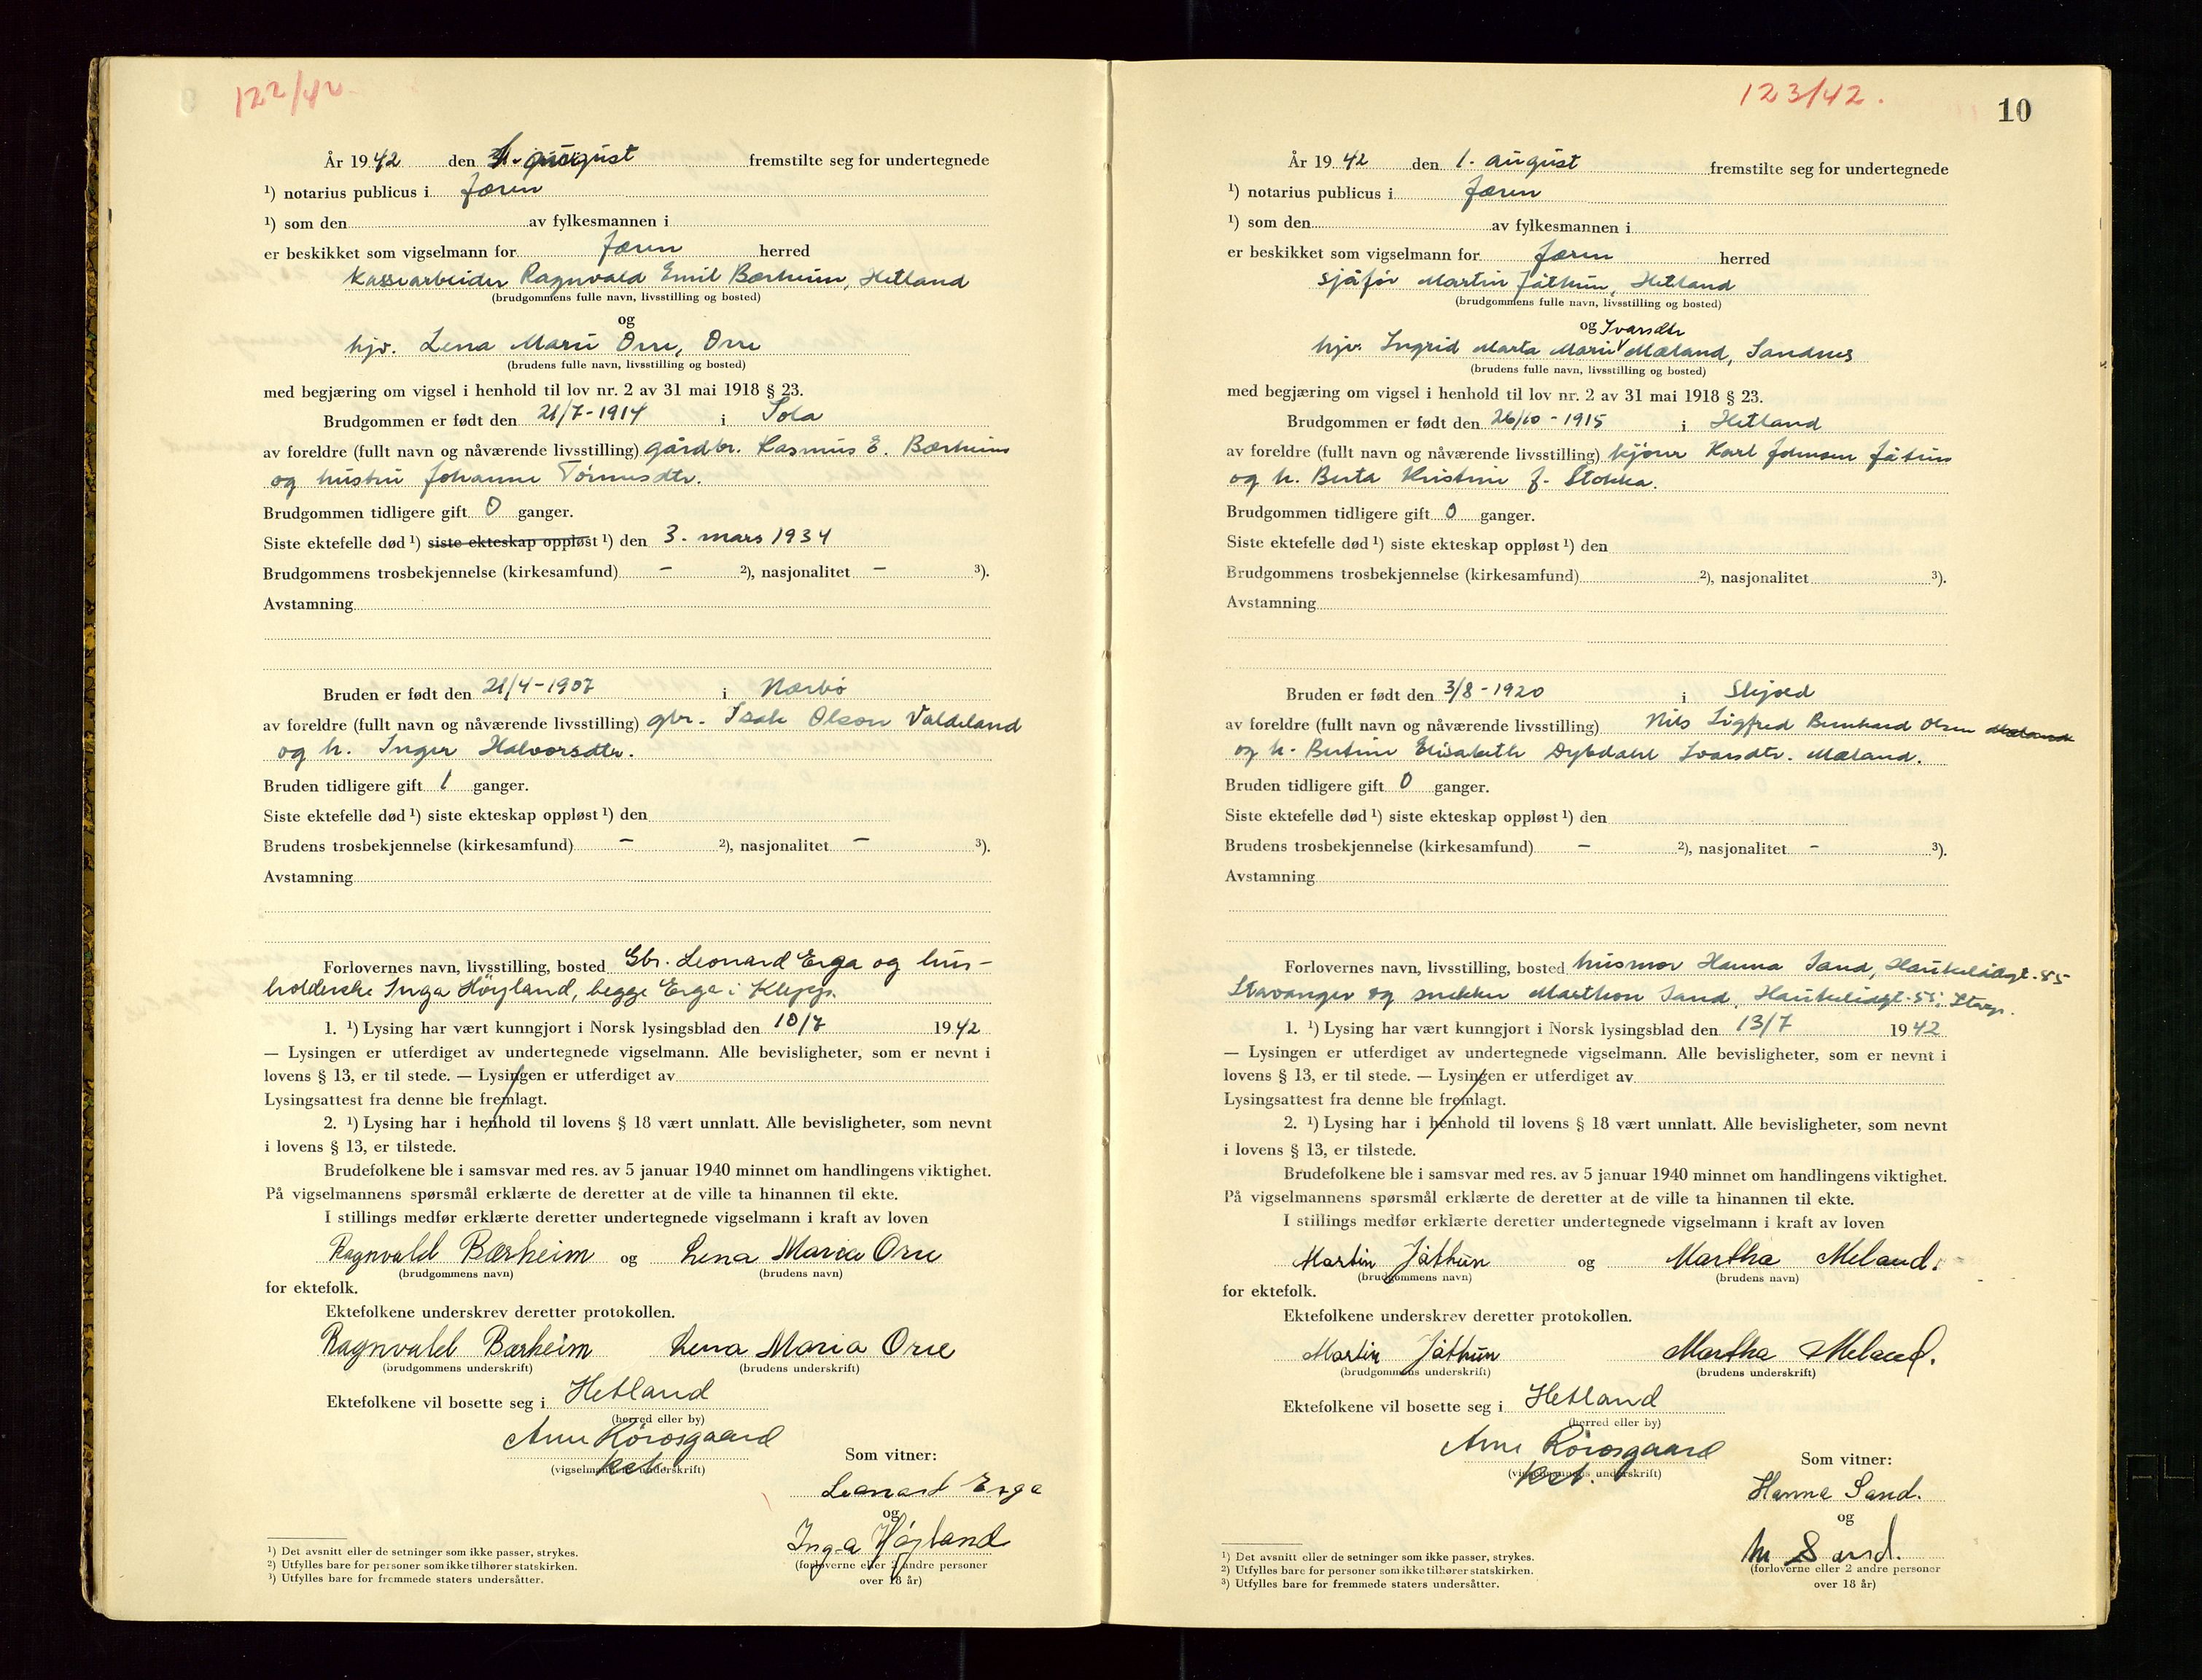 122/42
År 1942 den 1. august fremstilte seg for undertegnede
¹) notarius publicus i Jæren
¹) som den av fylkesmannen i
er beskikket som vigselmann for Jæren herred
Kassearbeider Ragnvald Emil Bærheim, Hetland
(brudgommens fulle navn, livsstilling og bosted)
og
hjv. Lena Marie Orre, Orre
(brudens fulle navn, livsstilling og bosted)
med begjæring om vigsel i henhold til lov nr. 2 av 31 mai 1918 § 23.
Brudgommen er født den 21/7-1914 i Sola
av foreldre (fullt navn og nåværende livsstilling) gårdbr. Rasmus E. Bærheim
og hustru Johanne Tórresdtr.
Brudgommen tidligere gift 0 ganger.
Siste ektefelle død ¹) siste ekteskap oppløst ¹) den 3. mars 1934
Brudgommens trosbekjennelse (kirkesamfund) – ²), nasjonalitet – ³).
Avstamning
Bruden er født den 21/4-1907 i Nærbø
av foreldre (fullt navn og nåværende livsstilling) gbr. Isak Olson Valdeland
og h. Inger Halvorsdtr.
Bruden tidligere gift 1 ganger.
Siste ektefelle død ¹) siste ekteskap oppløst ¹) den
Brudens trosbekjennelse (kirkesamfund) – ²), nasjonalitet – ³).
Avstamning
Forlovernes navn, livsstilling, bosted Gbr. Leonard Erga og hus-
holderske Inga Höyland, begge Erga i Klepp.
1. ¹) Lysing har vært kunngjort i Norsk lysingsblad den 10/7 1942
— Lysingen er utferdiget av undertegnede vigselmann. Alle bevisligheter, som er nevnt i
lovens § 13, er til stede. — Lysingen er utferdiget av
Lysingsattest fra denne ble fremlagt.
2. ¹) Lysing har i henhold til lovens § 18 vært unnlatt. Alle bevisligheter, som nevnt
i lovens § 13, er tilstede.
Brudefolkene ble i samsvar med res. av 5 januar 1940 minnet om handlingens viktighet.
På vigselmannens spørsmål erklærte de deretter at de ville ta hinannen til ekte.
I stillings medfør erklærte deretter undertegnede vigselmann i kraft av loven
Ragnvald Bærheim og Lena Maria Orre
(brudgommens navn) (brudens navn)
for ektefolk.
Ektefolkene underskrev deretter protokollen.
Ragnvald Bærheim Lena Maria Orre
(brudgommens underskrift) (brudens underskrift)
Ektefolkene vil bosette seg i Hetland
(herred eller by)
Arne Rörosgaard
kst.
(vigselmannens underskrift)
Som vitner:
Leonard Erga
og
Inga Höyland
(forloverne eller 2 andre personer
over 18 år)
¹) Det avsnitt eller de setninger som ikke passer, strykes.
²) Utfylles bare for personer som ikke tilhører statskirken.
³) Utfylles bare for fremmede staters undersåtter.
123/42.
10
År 1942 den 1. august fremstilte seg for undertegnede
¹) notarius publicus i Jæren
¹) som den av fylkesmannen i
er beskikket som vigselmann for Jæren herred
sjåför Martin Jåthun, Hetland
(brudgommens fulle navn, livsstilling og bosted)
og Ivarsdtr
hjv. Ingrid Marta Marie Mæland, Sandnes
(brudens fulle navn, livsstilling og bosted)
med begjæring om vigsel i henhold til lov nr. 2 av 31 mai 1918 § 23.
Brudgommen er født den 26/10-1915 i Hetland
av foreldre (fullt navn og nåværende livsstilling) kjörer Karl Johnsen Jåtun
og h. Berta Kristine f. Stokka.
Brudgommen tidligere gift 0 ganger.
Siste ektefelle død ¹) siste ekteskap oppløst ¹) den
Brudgommens trosbekjennelse (kirkesamfund) ²), nasjonalitet ³).
Avstamning
Bruden er født den 3/8-1920 i Skjold
av foreldre (fullt navn og nåværende livsstilling) Nils Sigfred Bernhard Olsen Mæland
og h. Bertine Elisabeth Dybdahl Ivarsdtr. Mæland.
Bruden tidligere gift 0 ganger.
Siste ektefelle død ¹) siste ekteskap oppløst ¹) den
Brudens trosbekjennelse (kirkesamfund) – ²), nasjonalitet – ³).
Avstamning
Forlovernes navn, livsstilling, bosted husmor Hanna Sand, Haukeligt. 55
Stavanger og snekker Marthon Sand, Haukeligt. 55, Stvgr.
1. ¹) Lysing har vært kunngjort i Norsk lysingsblad den 13/7 1942
— Lysingen er utferdiget av undertegnede vigselmann. Alle bevisligheter, som er nevnt i
lovens § 13, er til stede. — Lysingen er utferdiget av
Lysingsattest fra denne ble fremlagt.
2. ¹) Lysing har i henhold til lovens § 18 vært unnlatt. Alle bevisligheter, som nevnt
i lovens § 13, er tilstede.
Brudefolkene ble i samsvar med res. av 5 januar 1940 minnet om handlingens viktighet.
På vigselmannens spørsmål erklærte de deretter at de ville ta hinannen til ekte.
I stillings medfør erklærte deretter undertegnede vigselmann i kraft av loven
Martin Jåthun og Martha Meland.
(brudgommens navn) (brudens navn)
for ektefolk.
Ektefolkene underskrev deretter protokollen.
Martin Jåthun Martha Meland.
(brudgommens underskrift) (brudens underskrift)
Ektefolkene vil bosette seg i Hetland
(herred eller by)
Arne Rörosgaard
kst.
(vigselmannens underskrift)
Som vitner:
Hanna Sand.
og
M Sand.
(forloverne eller 2 andre personer
over 18 år)
¹) Det avsnitt eller de setninger som ikke passer, strykes.
²) Utfylles bare for personer som ikke tilhører statskirken.
³) Utfylles bare for fremmede staters undersåtter.